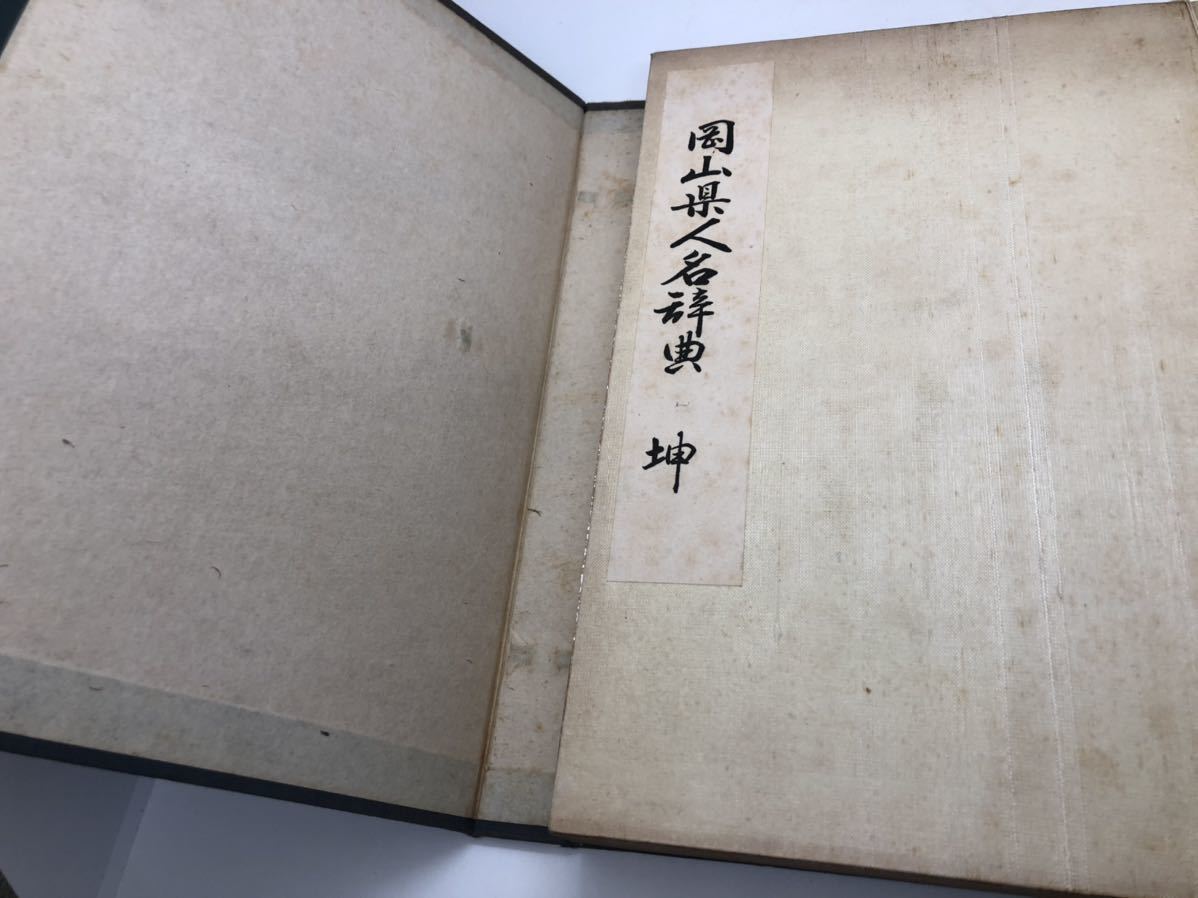 岡山県人名辞典 坤